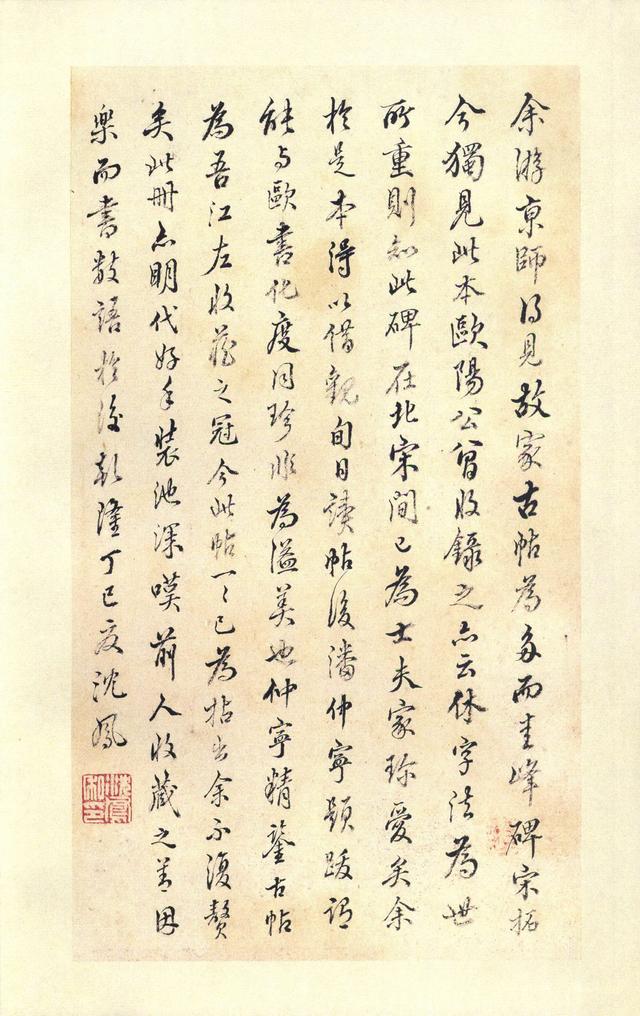 余游京師得見故家古帖為多而圭峰碑宋拓
今獨見此本歐陽公曾收錄之亦云休字法為世
所重則知此碑在北宋間已為士夫家珍愛矣余
於是本得以借觀旬日讀帖後潘仲寧題跋謂
能与歐書化度同珍非為溢美也仲寧精鑒古帖
為吾江左收藏之冠今此帖一一已為拈出余不復贅
矣此冊亦明代好手裝池深嘆前人收藏之善因
樂而書數語於後乾隆丁巳夏沈鳳
沈鳳私印